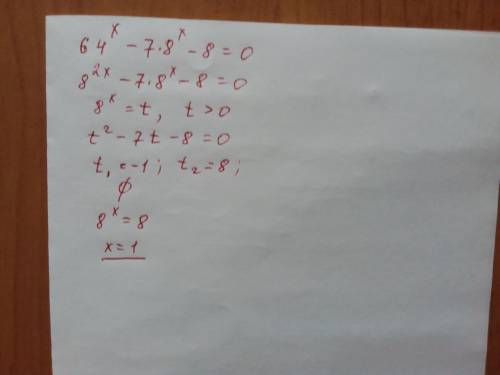 64^x − 7·8^x − 8 = 0
8^2x − 7·8^x − 8 = 0
8^x = t, t > 0
t² − 7t − 8 = 0
t₁ = −1; t₂ = 8;
∅
8^x = 8
x = 1